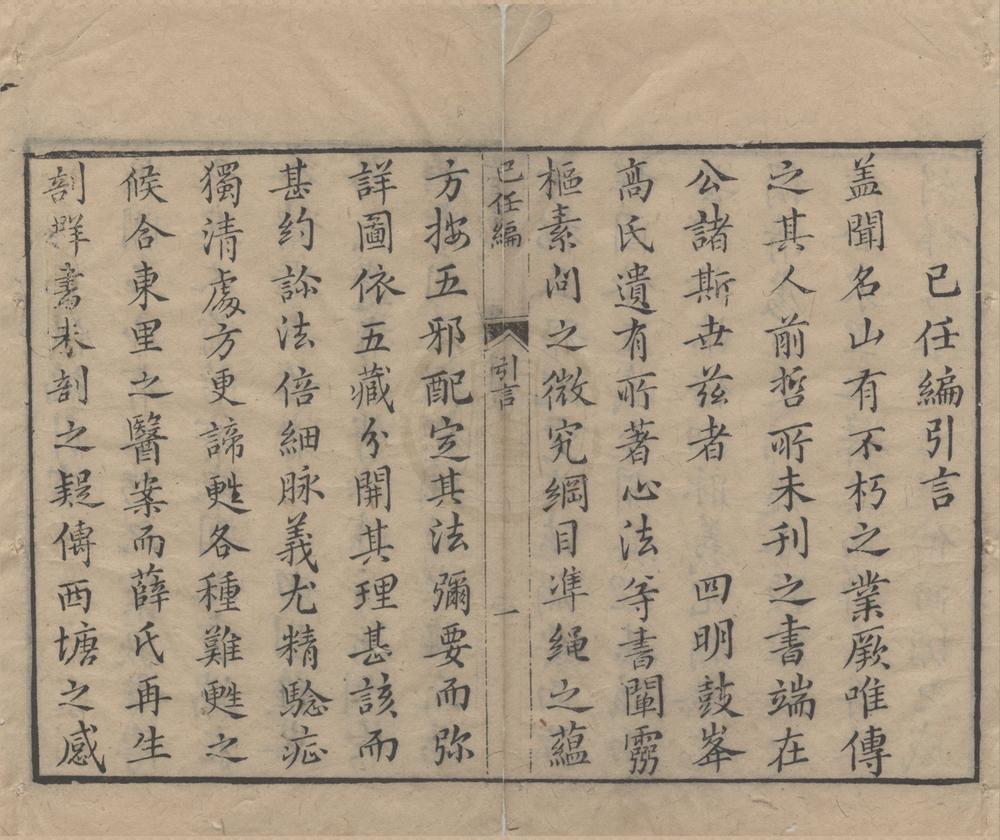 己任編引言
盖聞名山有不朽之業厥唯傳
之其人前哲所未刊之書端在
公諸斯世兹者　四明鼓峯
高氏遺有所著心法等書闡靈
樞素问之微究綱目準繩之蘊
己任編
引言
一
方按五邪配定其法彌要而弥
詳圖依五藏分開其理甚該而
甚約診法倍細脉義尤精騐症
獨清處方更諦甦各種難甦之
候合東里之醫案而薛氏再生
剖群書未剖之疑傳西塘之感